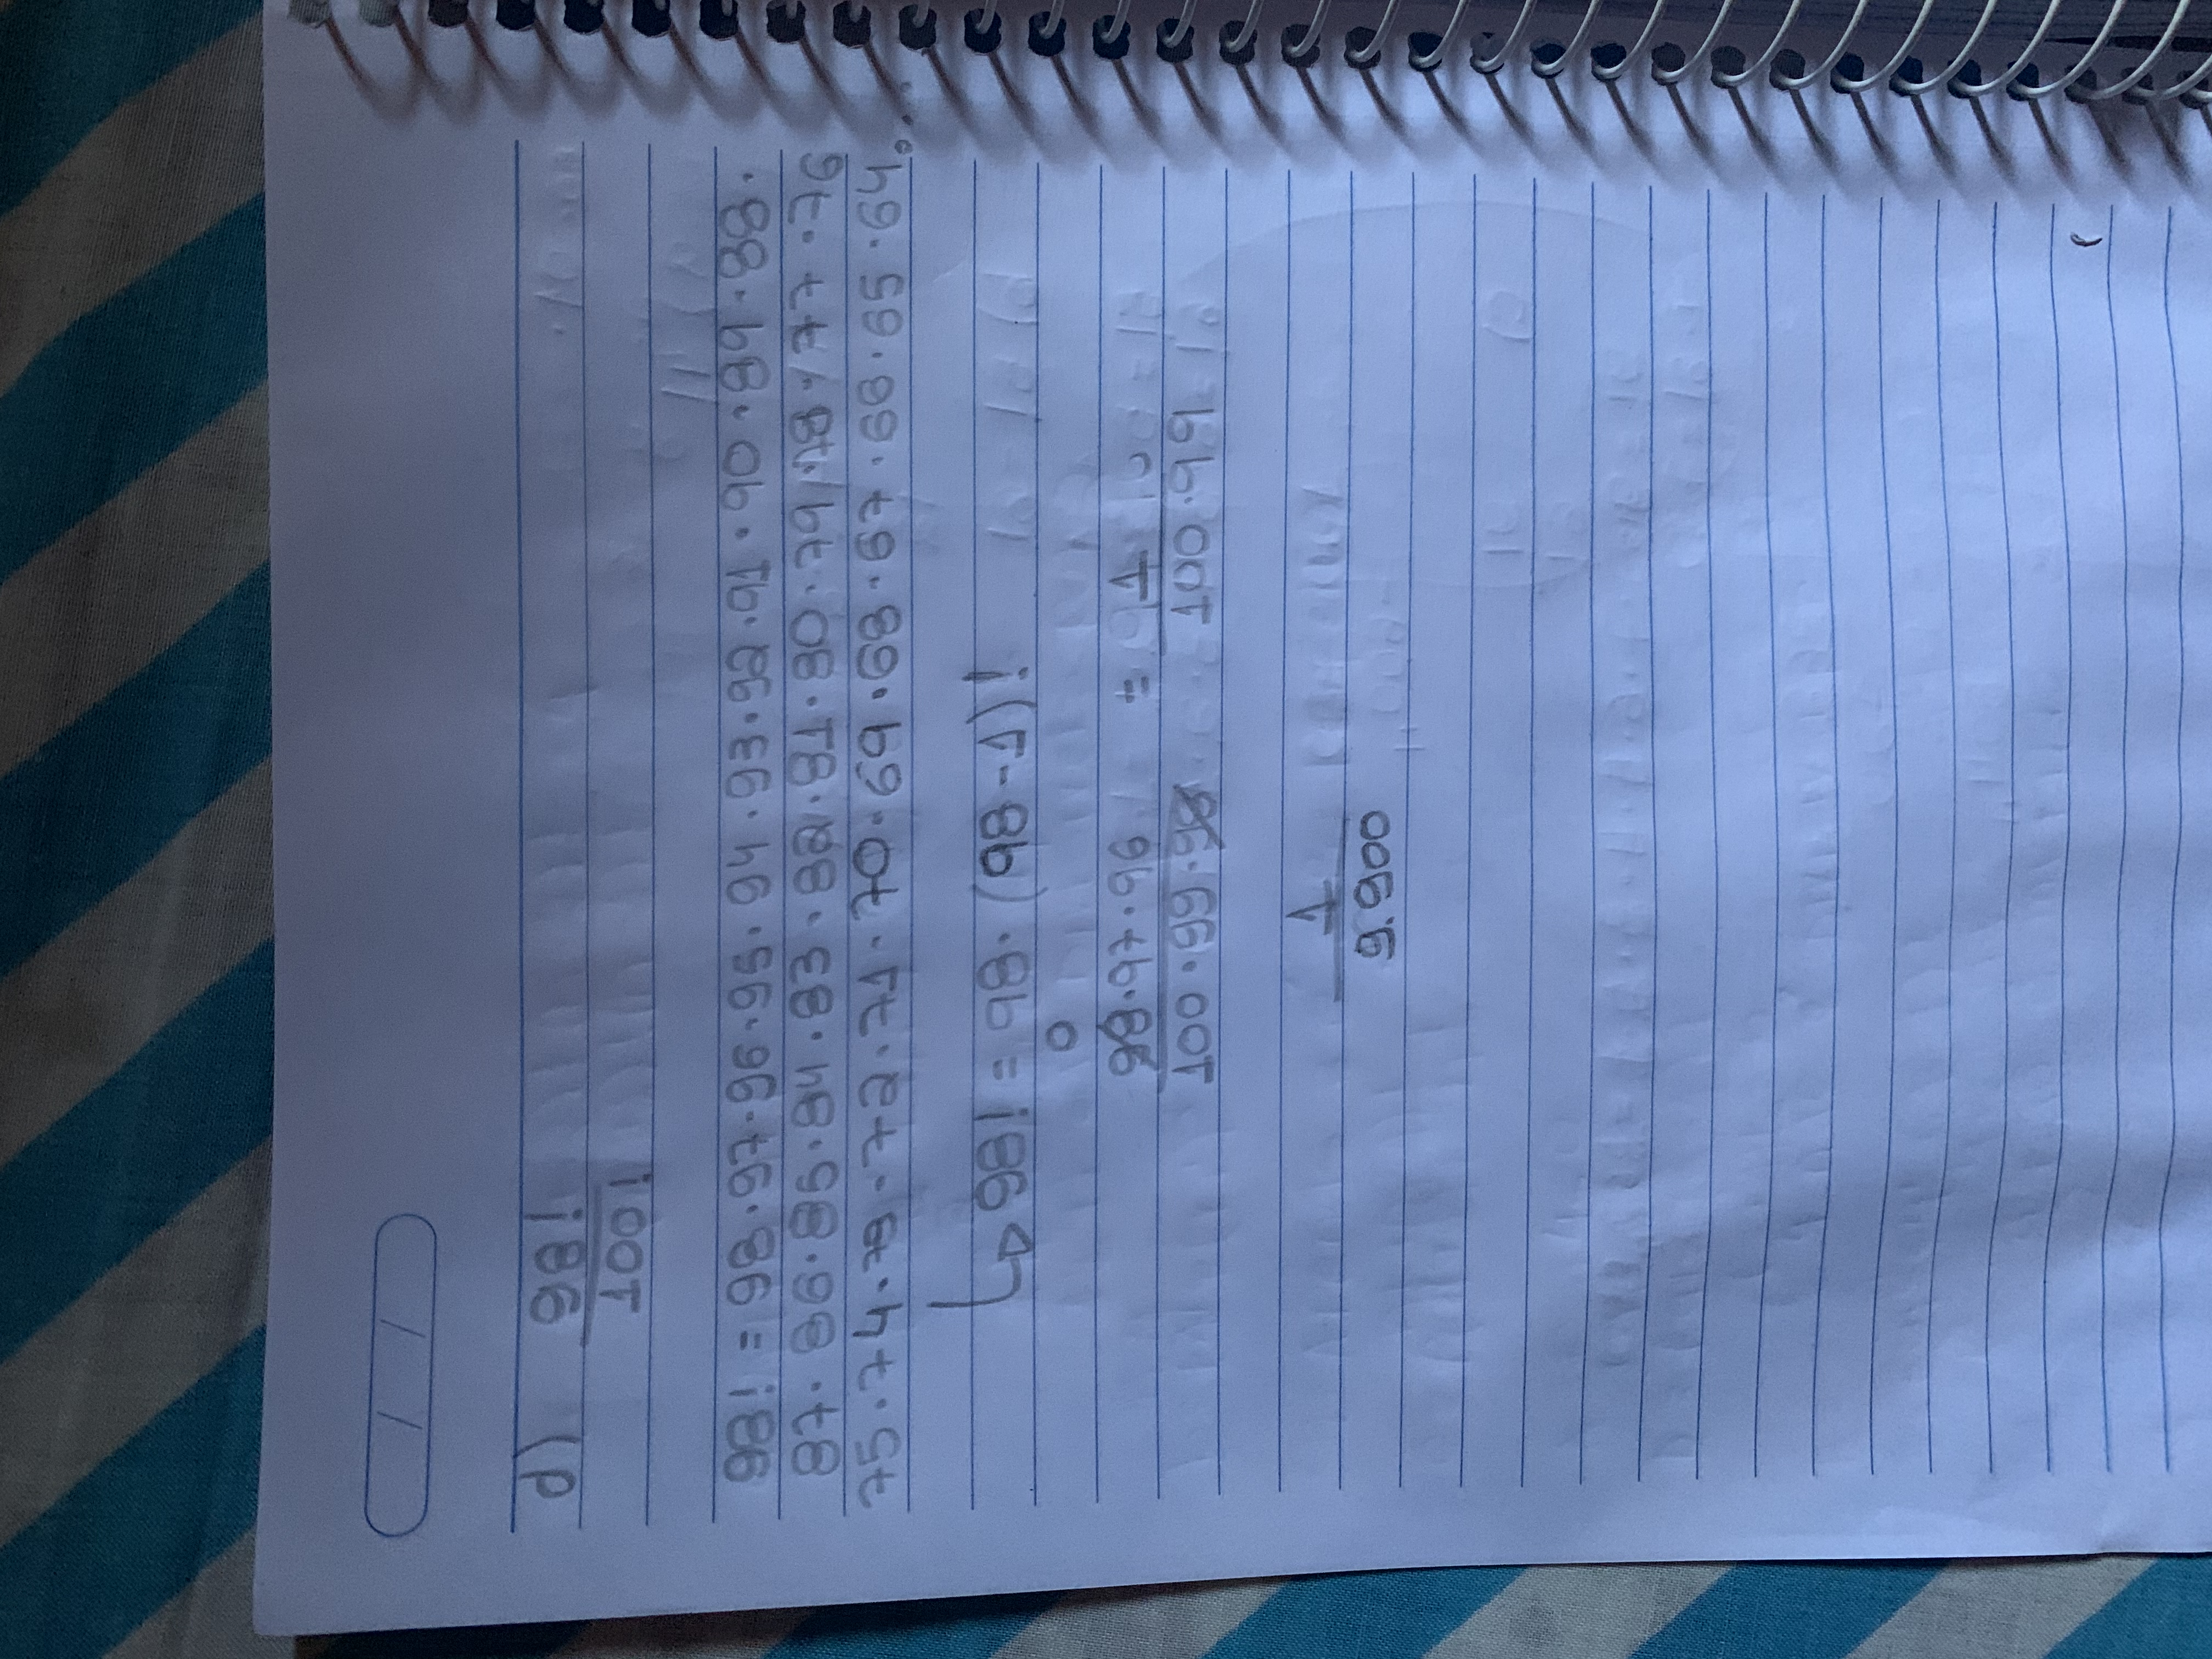 / /
d) 98!
100!
98! = 98·97·96·95·94·93·92·91·90·89·88·
87·86·85·84·83·82·81·80·79·78·77·76
75·74·73·72·71·70·69·68·67·66·65·64...
98! = 98·(98-1)!
0
98·97·96 = 1
100·99·98 100·99
1
9.900